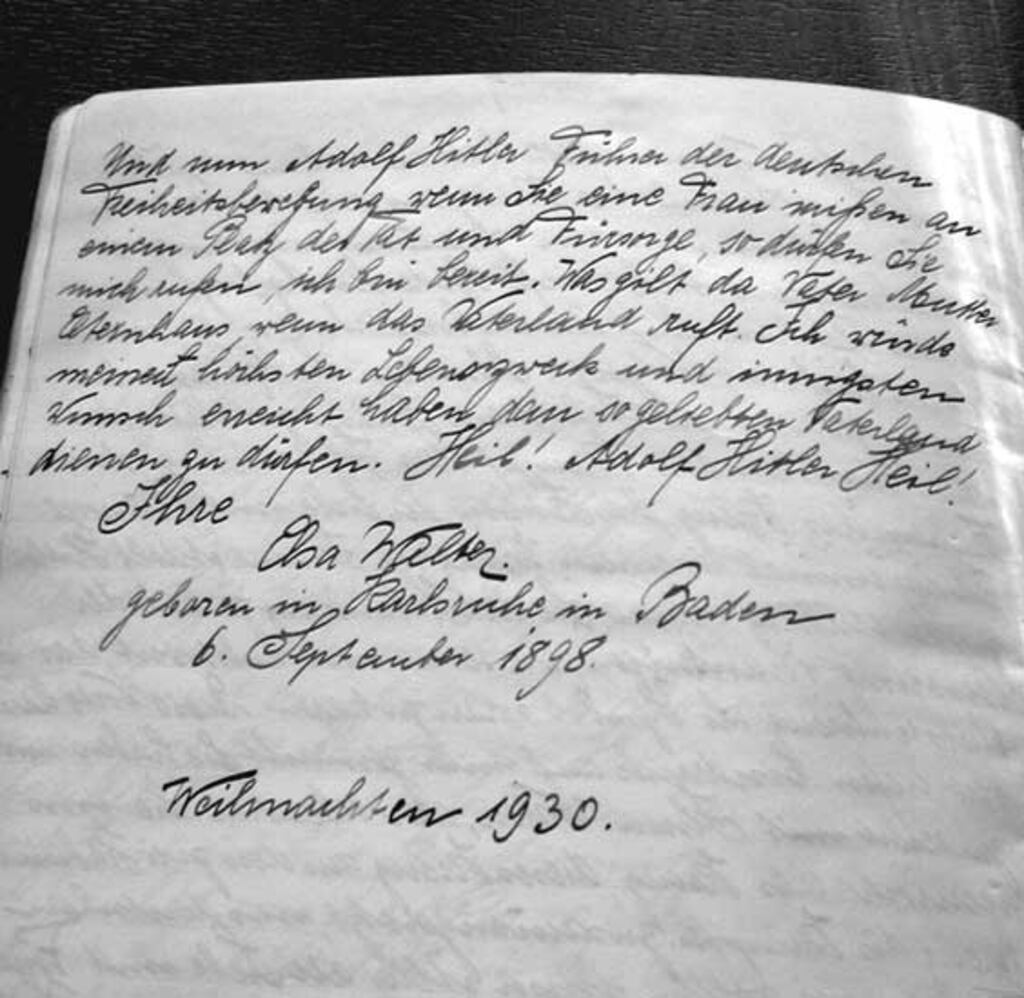 Und nun Adolf Hitler Führer der deutschen
Freiheitsbewegung wenn Sie eine Frau mißen an
einem Platz der Tat und Fürsorge, so dürfen Sie
mich rufen, ich bin bereit. Was gilt da Vater Mutter
Elternhaus wenn das Vaterland ruft. Ich würde
meinen höchsten Lebenszweck und innigsten
Wunsch erreicht haben dem so geliebten Vaterland
dienen zu dürfen. Heil! Adolf Hitler Heil!
Ihre
Elsa Walter.
geboren in Karlsruhe in Baden
6. September 1898.
Weihnachten 1930.